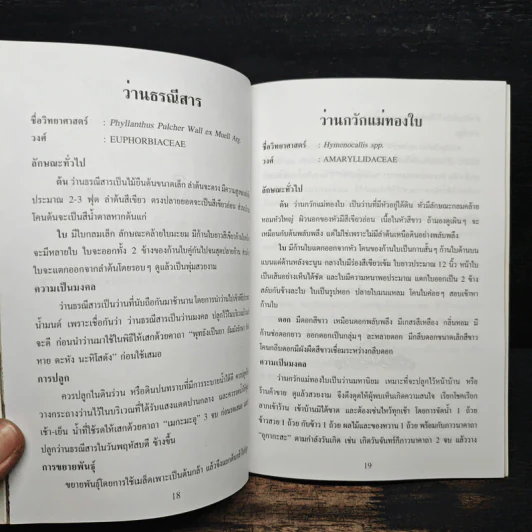 ว่านธรณีสาร
ชื่อวิทยาศาสตร์ : Phyllanthus Pulcher Wall ex Muell Arg.
วงศ์ : EUPHORBIACEAE
ลักษณะทั่วไป
ต้น ว่านธรณีสารเป็นไม้ยืนต้นขนาดเล็ก ลำต้นจะตรง มีความสูง
ประมาณ 2-3 ฟุต ลำต้นสีเขียว ตรงปลายยอดจะเป็นสีเขียวอ่อน ส่วน
โคนต้นจะเป็นสีน้ำตาลหากต้นแก่
ใบ มีใบกลมเล็ก ลักษณะคล้ายใบมะยม มีก้านใบยาวสีเขียว
จะมีหลายใบ ใบจะออกทั้ง 2 ข้างของก้านใบคู่กันไปจนสุดปลายก้าน
ใบจะแตกออกจากลำต้นโดยรอบๆ ดูแล้วเป็นพุ่มสวยงาม
ความเป็นมงคล
ว่านธรณีสารเป็นว่านที่นับถือกันมาช้านาน โดยการนำว่านไป
น้ำมนต์ เพราะเชื่อกันว่า ว่านธรณีสารเป็นว่านมงคล ปลูกไว้
จะดี ก่อนนำว่านมาใช้ในพิธีให้เสกด้วยคาถา "พุทธังเป็นยา
หาย ตะหัง นะหิโสตัง" ก่อนใช้เสมอ
การปลูก
ควรปลูกในดินร่วน หรือดินปนทรายที่มีการระบายน้ำได้ดี
วางกระถางว่านไว้ในบริเวณที่ได้รับแสงแดดปานกลาง
เช้า-เย็น น้ำที่ใช้รดให้เสกด้วยคาถา "เมกะมะอุ" 3 จบ ก่อนรด
ปลูกว่านธรณีสารในวันพฤหัสบดี ข้างขึ้น
การขยายพันธุ์
ขยายพันธุ์โดยการใช้เมล็ดเพาะเป็นต้นกล้า แล้วจึง
18
ว่านกวักแม่ทองใบ
ชื่อวิทยาศาสตร์ : Hymenocallis spp.
วงศ์ : AMARYLLIDACEAE
ลักษณะทั่วไป
ต้น ว่านกวักแม่ทองใบ เป็นว่านที่มีหัวอยู่ใต้ดิน หัวมีลักษณะกลมคล้าย
หอมหัวใหญ่ ผิวนอกของหัวมีสีเขียวอ่อน เนื้อในหัวสีขาว ถ้ามองดูเผินๆ จะ
เหมือนกับต้นพลับพลึง แต่ไม่ใช่เพราะไม่มีลำต้นเหนือดินอย่างพลับพลึง
ใบ มีก้านใบแตกออกจากหัว โคนของก้านใบเป็นกาบสั้นๆ ก้านใบด้านบน
แบนแต่ด้านหลังจะนูน กลางใบมีร่องสีเขียวเข้ม ใบยาวประมาณ 12 นิ้ว หน้าใบ
เป็นเส้นอย่างเห็นได้ชัด และใบมีความหนาพอประมาณ แตกใบออกเป็น 2 ข้าง
สลับกันข้างละใบ ใบเป็นรูปหอก ปลายใบมนแหลม โคนใบค่อยๆ สอบเข้าหา
ก้านใบ
ดอก มีดอกสีขาว เหมือนดอกพลับพลึง มีเกสรสีเหลือง กลิ่นหอม มี
ก้านช่อดอกยาว ออกดอกเป็นกลุ่มๆ ละหลายดอก มีกลีบดอกขนาดเล็กสีขาว
โคนกลีบดอกมีผังผืดสีขาวเชื่อมระหว่างกลีบดอก
ความเป็นมงคล
ว่านกวักแม่ทองใบเป็นว่านมหานิยม เหมาะที่จะปลูกไว้หน้าบ้าน หรือ
ร้านค้าขาย ดูแล้วสวยงาม จึงดึงดูดให้ผู้พบเห็นเกิดความสนใจ เรียกโชคเรียก
ลาภเข้าร้าน เข้าบ้านมิได้ขาด และต้องเซ่นไหว้ทุกเช้า โดยการจัดน้ำ 1 ถ้วย
ข้าวสวย 1 ถ้วย กับข้าว 1 ถ้วย ผลไม้และของหวาน 1 ถ้วย พร้อมกับภาวนาคาถา
"อุกากะสะ" ตามกำลังวันเกิด เช่น เกิดวันจันทร์ก็ภาวนาคาถา 2 จบ แล้ววาง
19